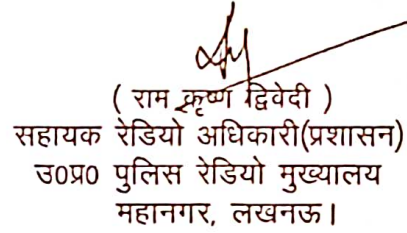 ( राम कृष्ण द्विवेदी )
सहायक रेडियो अधिकारी(प्रशासन)
उ0प्र0 पुलिस रेडियो मुख्यालय
महानगर, लखनऊ।